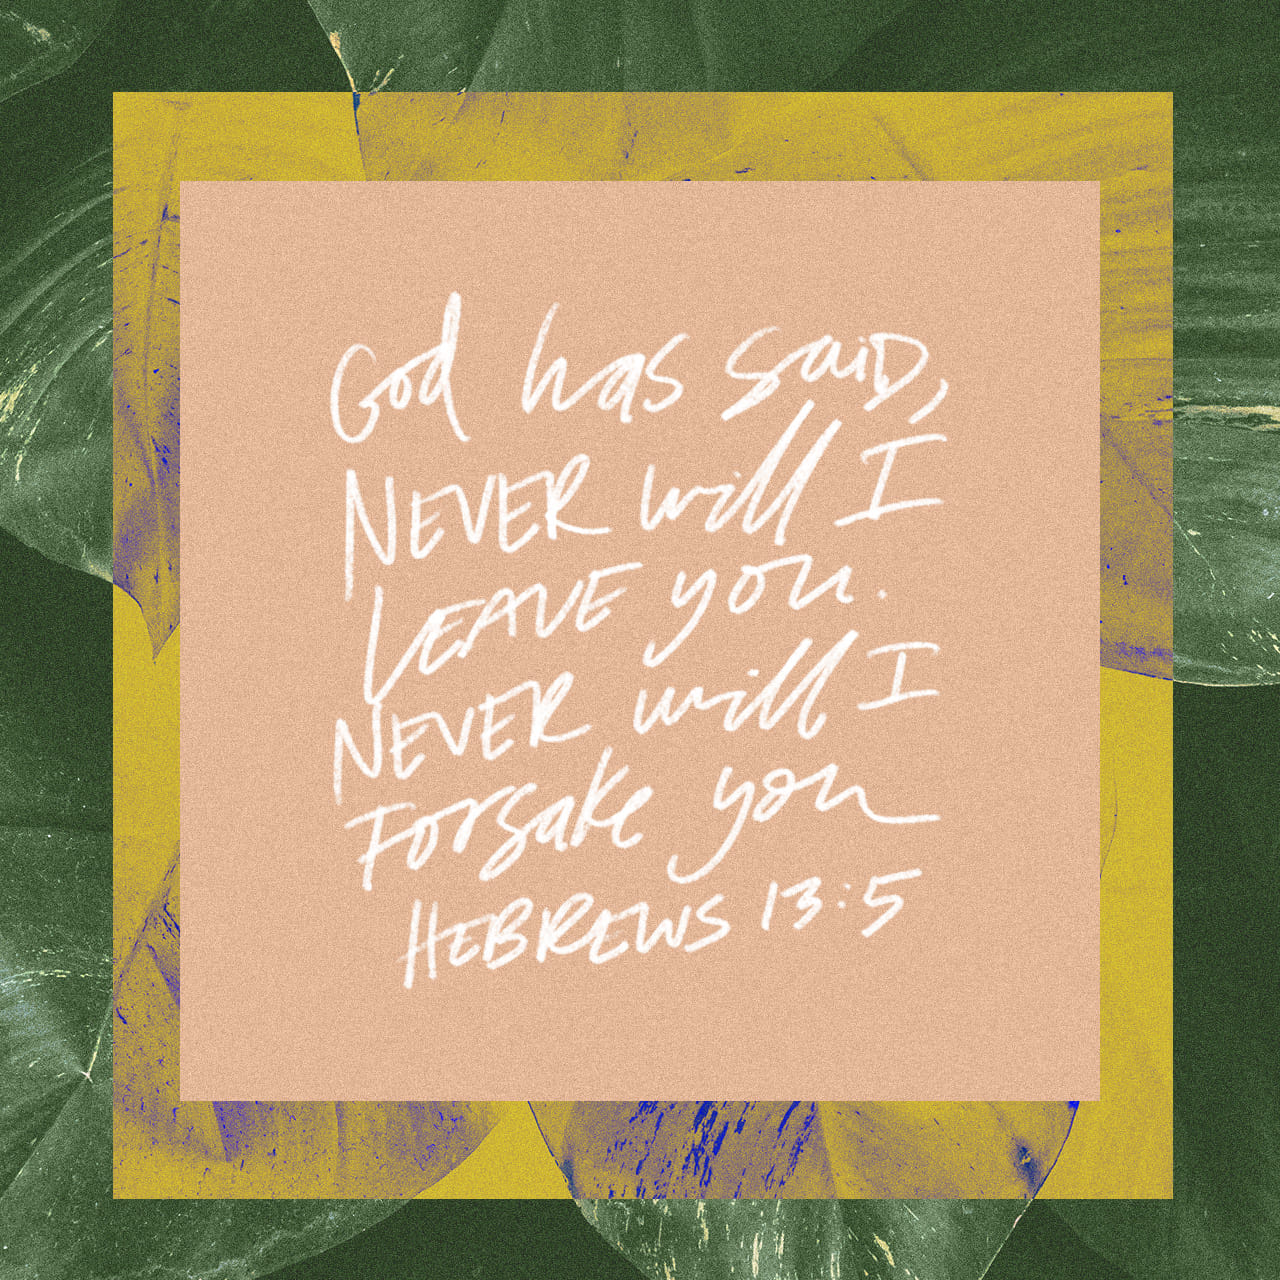 God has said,
NEVER will I
LEAVE you.
NEVER will I
Forsake you
HEBREWS 13:5